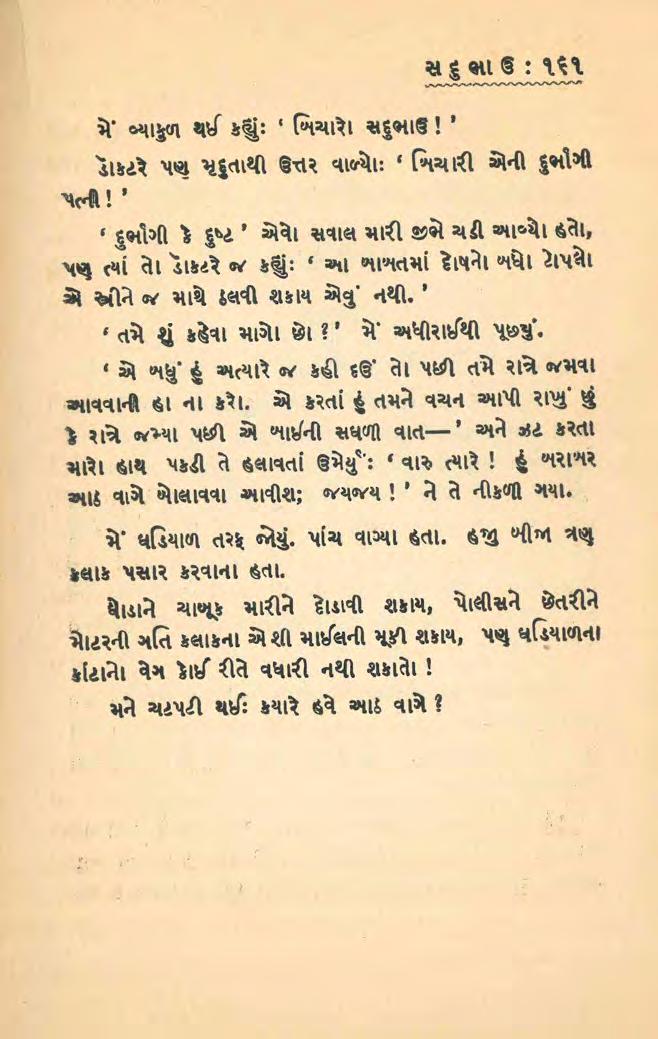 સદુભાઉ : ૧૬૧
મેં વ્યાકુળ થઈ કહ્યુંઃ ‘ બિચારો સદુભાઉ ! ’
ડૉકટરે પણ મૃદુતાથી ઉત્તર વાળ્યોઃ ‘ બિચારી એની દુર્ભાગી
પત્ની ! ’
‘ દુર્ભાગી કે દુષ્ટ ’ એવો સવાલ મારી જીભે ચડી આવ્યો હતો,
પણ ત્યાં તો ડૉકટરે જ કહ્યુંઃ ‘ આ બાબતમાં દોષનો બધો ટોપલો
એ સ્ત્રીને જ માથે ઠલવી શકાય એવું નથી. ’
‘ તમે શું કહેવા માગો છો ? ’ મેં અધીરાઈથી પૂછ્યું.
‘ એ બધું હું અત્યારે જ કહી દઉં તો પછી તમે રાત્રે જમવા
આવવાની હા ના કરો. એ કરતાં હું તમને વચન આપી રાખું છું
કે રાત્રે જમ્યા પછી એ બાઇની સઘળી વાત— ’ અને ઝટ કરતા
મારો હાથ પકડી તે હલાવતાં ઉમેર્યુંઃ ‘ વારુ ત્યારે ! હું બરાબર
આઠ વાગે બોલાવવા આવીશ; જયજય ! ’ ને તે નીકળી ગયા.
મેં ઘડિયાળ તરફ જોયું. પાંચ વાગ્યા હતા. હજુ બીજા ત્રણ
કલાક પસાર કરવાના હતા.
ઘોડાને ચાબૂક મારીને દોડાવી શકાય, પોલીસને છેતરીને
મોટરની ગતિ કલાકના એશી માઈલની મૂકી શકાય, પણ ઘડિયાળના
કાંટાનો વેગ કોઈ રીતે વધારી નથી શકાતો !
મને ચટપટી થઈઃ કયારે હવે આઠ વાગે ?